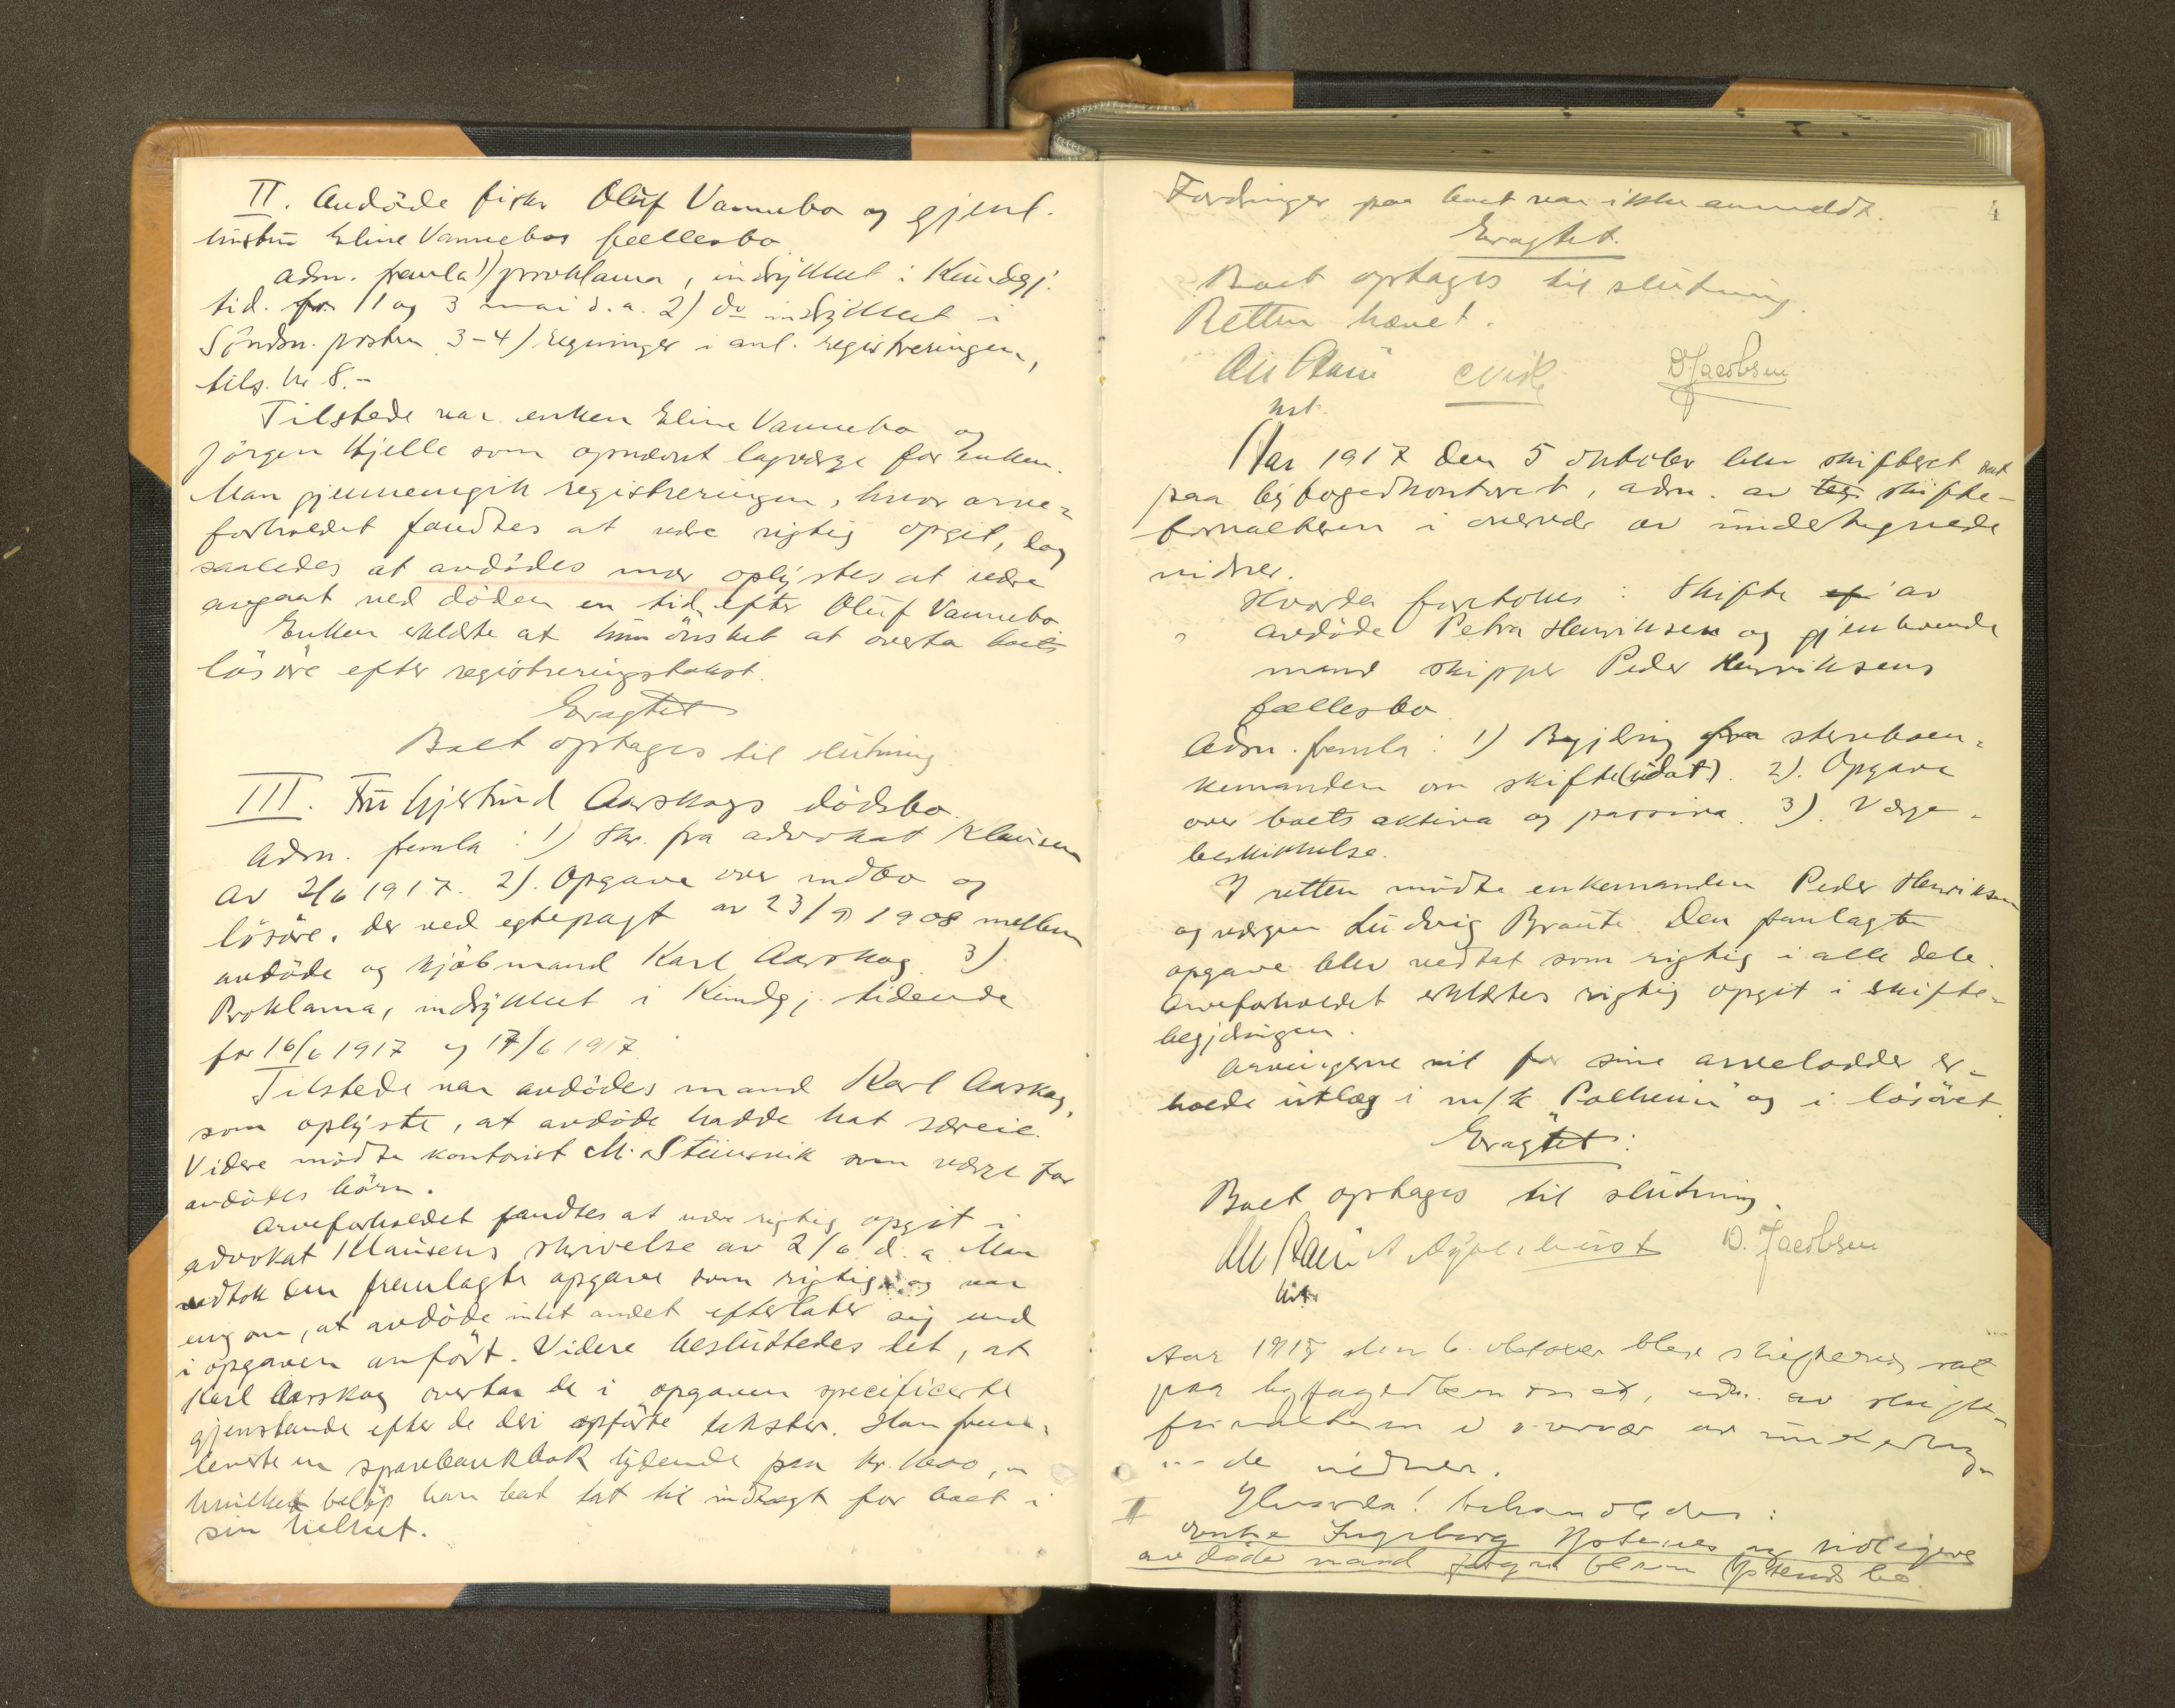 II. Avdöde fisker Oluf Vannebo og gjenl.
hustru Eline Vannebos fællesbo
Adm. fremla 1) proklama, indrykket i Kundgj.
tid. for 1 og 3 mai d.a. 2) do indrykket i
Söndm. posten 3-4) regninger i anl. registreringen,
tils. kr 8.-
Tilstede var enken Eline Vannebo og
Jörgen Hjelle som opnævnt lagværge for enken.
Man gjennemgik registreringen, hvor arve-
forholdet fandtes at være rigtig opgit, dog
saaledes at avdödes mor oplystes at være
avgaat ved döden en tid efter Oluf Vannebo
Enken erklærte at hun önsket at overta boets
lösöre efter registreringstakst.
Eragtet
Boet optages til slutning.
III. Fru Gjertrud Aarskogs dödsbo.
Adm. fremla: 1) Skr. fra advokat Klausen
av 2/6 1917. 2). Opgave over indbo og
lösöre, der ved egtepagt av 23/9 1908 mellem
avdöde og kjöbmand Karl Aarskog 3)
Proklama, indrykket i Kundgj. tidende
for 16/6 1917 og 17/6 1917.
Tilstede var avdödes mand Karl Aarskog,
som oplyste, at avdöde hadde hat særeie.
Videre mödte kontorist M. Stuevik som værge for
avdödes börn.
Arveforholdet fandtes at være rigtig opgit i
advokat Klausens skrivelse av 2/6 d.a. Man
vedtok den fremlagte opgave som rigtig og var
enig om, at avdöde intet andet efterlater sig end
i opgaven anfört. Videre besluttedes det, at
Karl Aarskog overtar de i opgaven specificerte
gjenstande efter de der opförte takster. Han frem-
leverte en sparebankbok lydende paa kr.
hvilket belöp han bad tat til indtægt for boet i
sin helhet.
4
Fordringer paa boet var ikke anmeldt.
Eragtet.
Boet optages til slutning.
Retten hævet.
D. Jacobsen
Aar 1917 den 5 oktober blev skifteret sat
paa byfogedkontoret, adm. av skifte-
forvalteren i overvær av undertegnede
vidner.
Hvorda foretokes: Skifte ef av
avdöde Petra Henriksen og gjenlevende
mand skipper Peder Henriksens
fællesbo.
Adm. fremla: 1) Begjæring fra sterkboen-
kemanden om skifte (udat). 2). Opgave
over boets aktiva og passiva. 3). Værge-
beskikkelse.
I retten mödte enkemanden Peder Henriksen
og værgen Ludvig Braute. Den fremlagte
opgave blev vedtat som rigtig i alle dele.
Arveforholdet erklærtes rigtig opgit i skifte-
begjæringen.
Arvingerne vil for sine arvelodder er-
holde utlæg i m/k "Polheim" og i lösöret.
Eragtet:
Boet optages til slutning.
D. Jacobsen
Aar 1917 den 6. oktober blev skifteret sat
paa byfogedkontoret, adm. av skifte-
forvalteren i overvær av underteg-
nede vidner.
II Hvorda! behandledes:
enke Ingeborg og tidligere
avdöde mand bo